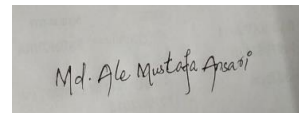 Md. Ale Mustafa Ansari